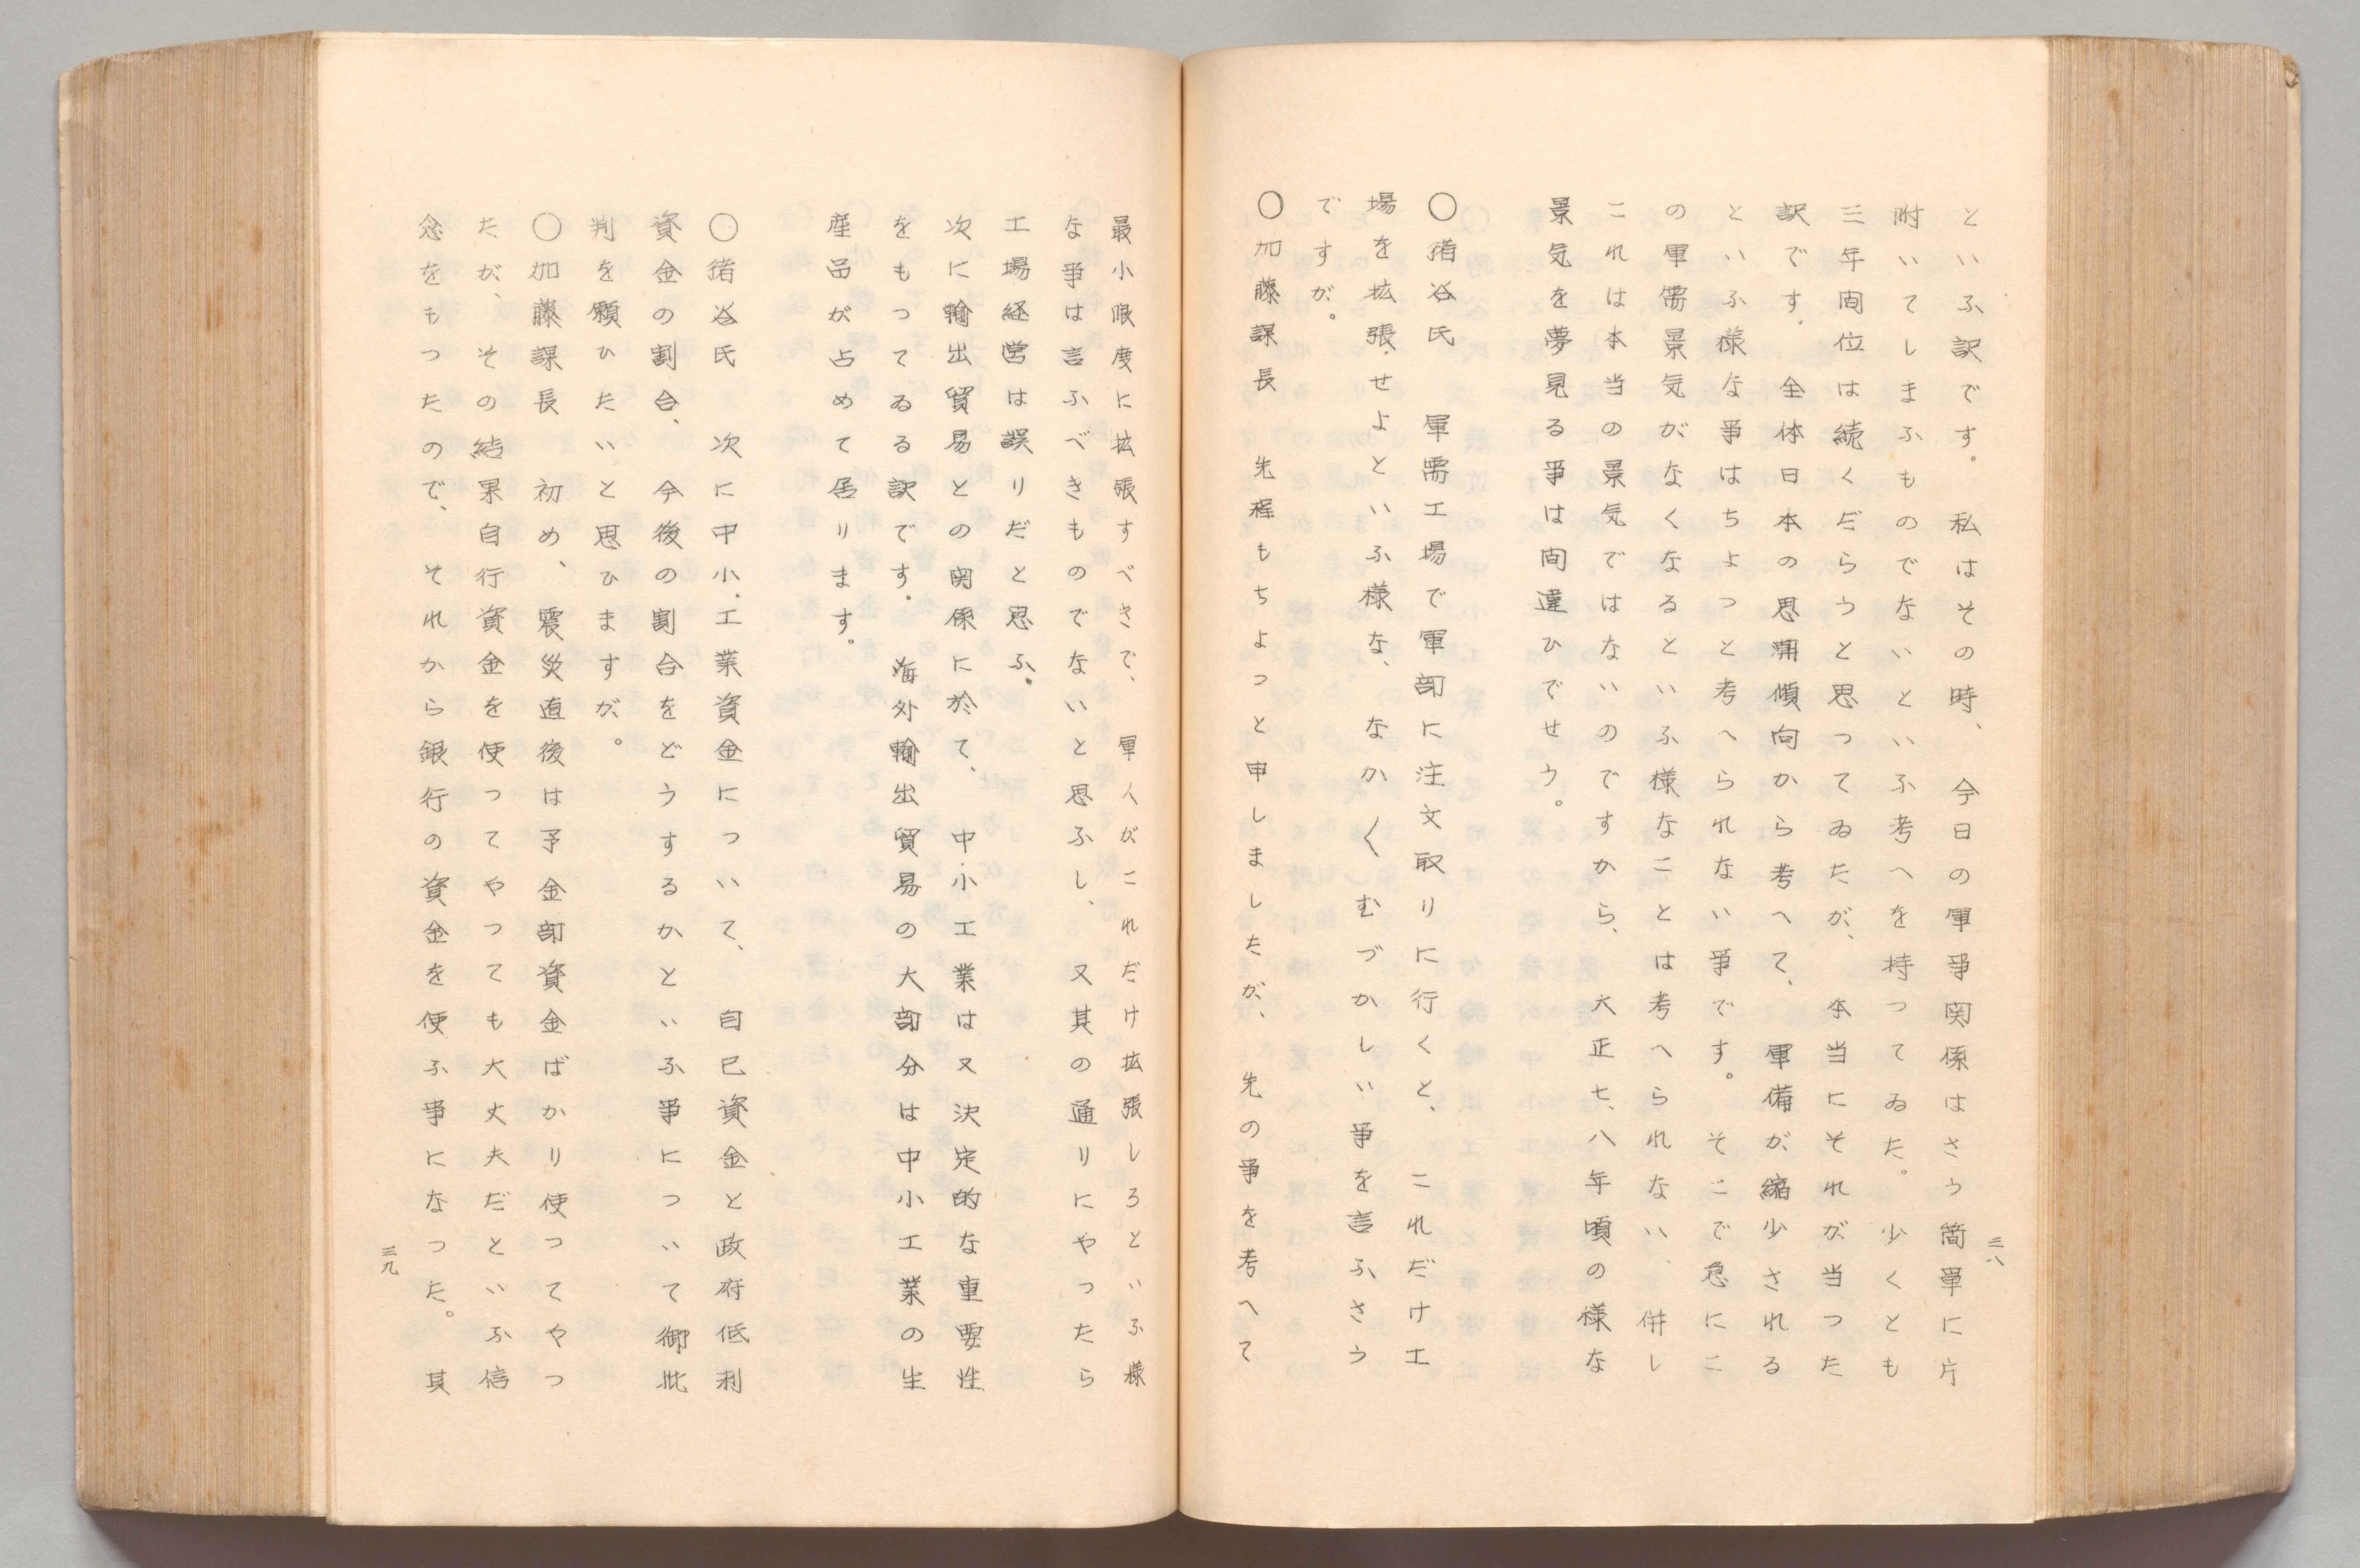 といふ訳です。私はその時、今日の軍事関係はさう簡単に片
附いてしまふものでないといふ考へを持つてゐた。少くとも
三年間位は続くだらうと思つてゐたが、本当にそれが当つた
訳です。全体日本の思潮傾向から考へて、軍備が縮少される
といふ様な事はちよつと考へられない事です。そこで急にこ
の軍需景気がなくなるといふ様なことは考へられない、併し
これは本当の景気ではないのですから、大正七、八年頃の様な
景気を夢見る事は間違ひでせう。
〇猪谷氏 軍需工場で軍部に注文取りに行くと、これだけ工
場を拡張せよといふ様な、なか〱むづかしい事を言ふさう
ですが。
〇加藤課長 先程もちよつと申しましたが、先の事を考へて
三八
最小限度に拡張すべきで、軍人がこれだけ拡張しろといふ様
な事は言ふべきものでないと思ふし、又其の通りにやつたら
工場経営は誤りだと思ふ。
次に輸出貿易との関係に於て、中小工業は又決定的な重要性
をもつてゐる訳です。海外輸出貿易の大部分は中小工業の生
産品が占めて居ります。
〇猪谷氏 次に中小工業資金について、自己資金と政府低利
資金の割合、今後の割合をどうするかといふ事について御批
判を願ひたいと思ひますが。
〇加藤課長 初め、震災直後は予金部資金ばかり使つてやつ
たが、その結果自行資金を使つてやつても大丈夫だといふ信
念をもつたので、それから銀行の資金を使ふ事になつた。其
三九